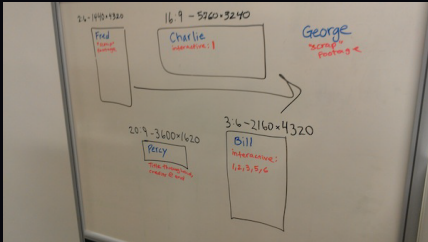 2:6-1440×4320
Fred
16:9 - 5760×3240
Charlie
interactive: 1
George
"scrap"
footage
20:9-3600×1620
Percy
3:6-2160×4320
Bill
interactive:
1,2,3,5,6